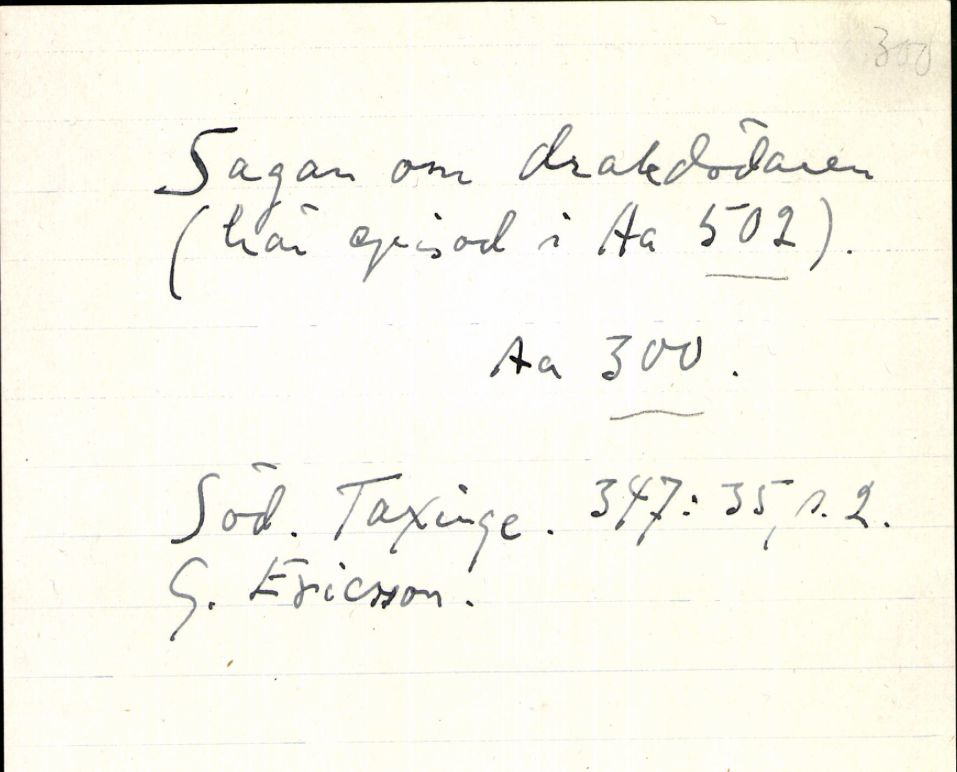 300
Sagan om drakdödaren
(här episod i Aa 502).
Aa 300.
Söd. Taxinge. 347:35, s. 2.
G. Ericsson.